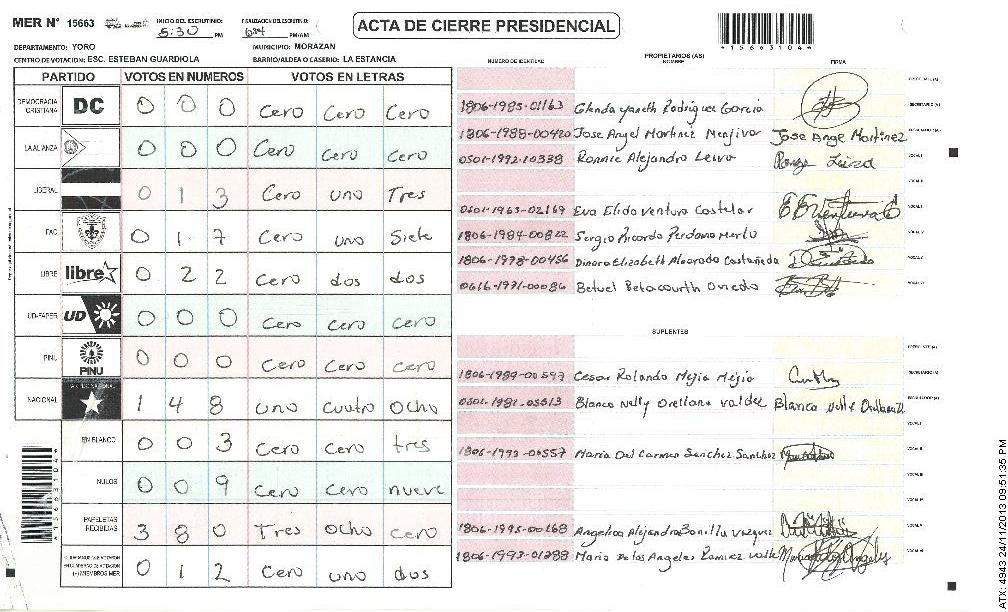 MER N° 15663
INICIO DEL ESCRUTINIO:
5:30 PM
FINALIZACION DEL ESCRUTINIO:
PM/AM
ACTA DE CIERRE PRESIDENCIAL
*15663104*
DEPARTAMENTO: YORO
MUNICIPIO: MORAZAN
CENTRO DE VOTACION: ESC. ESTEBAN GUARDIOLA
BARRIO/ALDEA O CASERIO: LA ESTANCIA
PARTIDO VOTOS EN NUMEROS VOTOS EN LETRAS
DEMOCRACIA CRISTIANA DC 0 0 0 Cero Cero Cero
LA ALIANZA 0 0 0 Cero Cero Cero
LIBERAL 0 1 3 Cero uno Tres
PAC 0 1 7 Cero uno Siete
LIBRE libre 0 2 2 Cero dos dos
UD-FAPER UD 0 0 0 Cero Cero Cero
PINU PINU 0 0 0 Cero Cero Cero
NACIONAL 1 4 8 uno cuatro Ocho
EN BLANCO 0 0 3 Cero Cero tres
NULOS 0 0 9 Cero Cero nueve
PAPELETAS RECIBIDAS 3 8 0 Tres Ocho Cero
(+) MIEMBROS MER 0 1 2 Cero uno dos
NUMERO DE IDENTIDAD
PROPIETARIOS (AS)
NOMBRE
FIRMA
1806-1985-01163 Glenda Yaneth Rodriguez Garcia
1806-1988-00420 Jose Angel Martinez Menjivar Jose Angel Martinez
0501-1992-10338 Ronnie Alejandro Leiva
0601-1963-02169 Eva Elida Ventura Castelar
1806-1984-00822 Sergio Ricardo Perdomo Merlo
1806-1978-00456 Dinora Elizabeth Alvarado Castañeda
0616-1971-00086 Betuel Betacourth Oviedo
SUPLENTES
1806-1989-00597 Cesar Rolando Mejia Mejia
0501-1981-05513 Blanca Nelly Orellana Valdez
1806-1993-00557 Maria Del Carmen Sanchez Sanchez
1806-1995-00168 Angelica Alejandra Bonilla Vazquez
1806-1993-01288 Maria De los Angeles Ramirez Valle
ATX: 4943 24/11/2013 09:51:35 PM